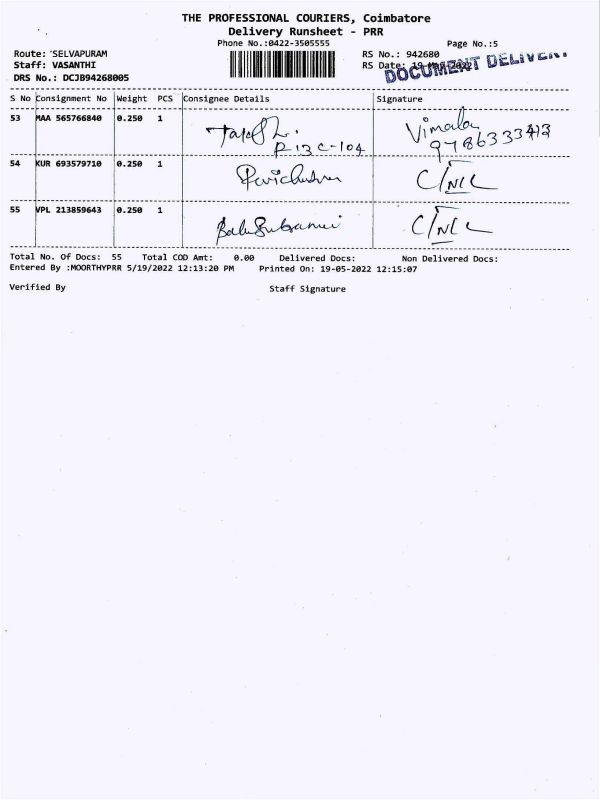 THE PROFESSIONAL COURIERS, Coimbatore
Delivery Runsheet - PRR
Phone No.:0422-3505555
Page No.:5
Route: SELVAPURAM
RS No.: 942680
Staff: VASANTHI
RS Date: 19-May-2022
DOCUMENT DELIVERY
DRS No.: DCJB94268005
S No Consignment No Weight PCS Consignee Details Signature
53 MAA 565766840 0.250 1 Vimala
R13 C-104
54 KUR 693579710 0.250 1
55 VPL 213859643 0.250 1
Total No. Of Docs: 55 Total COD Amt: 0.00 Delivered Docs: Non Delivered Docs:
Entered By :MOORTHYPRR 5/19/2022 12:13:20 PM Printed On: 19-05-2022 12:15:07
Verified By Staff Signature